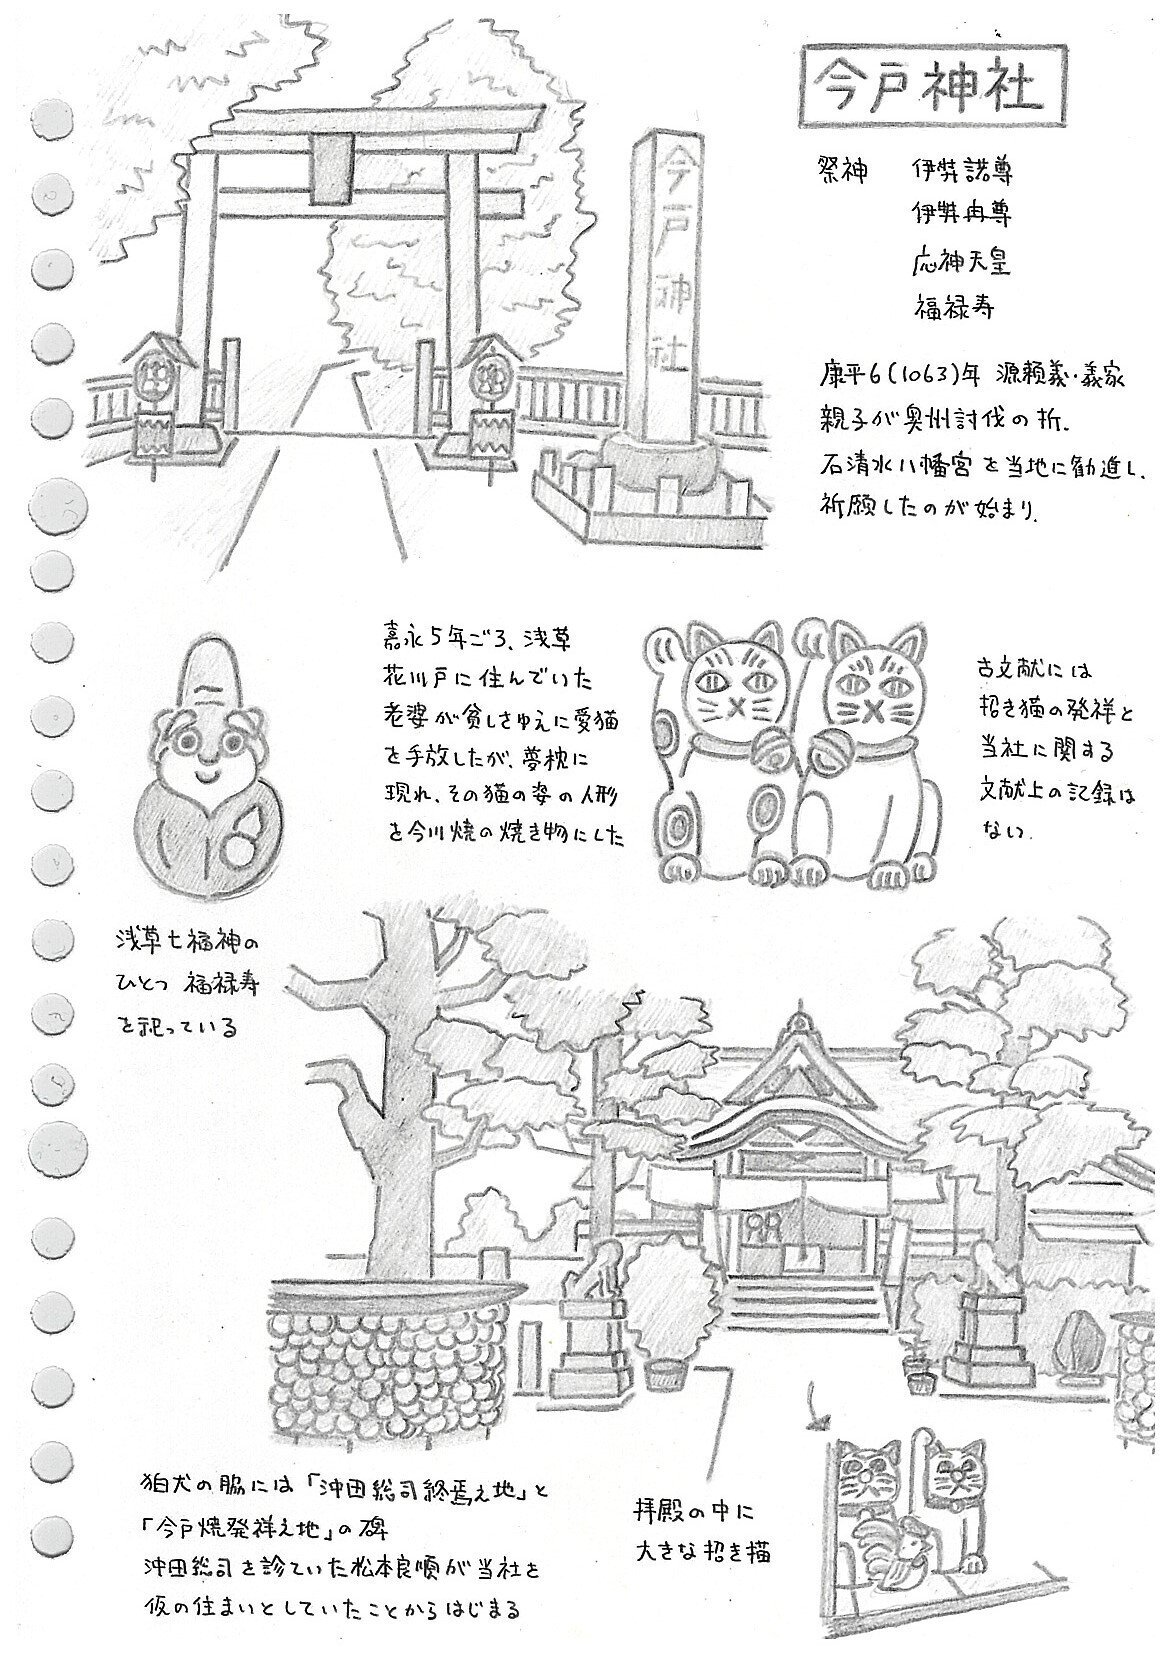 今戸神社
祭神 伊弉諾尊
伊弉冉尊
応神天皇
福禄寿
康平6(1063)年 源頼義・義家
親子が奥州討伐の折、
石清水八幡宮を当地に勧進し、
祈願したのが始まり。
今戸神社
嘉永5年ごろ、浅草
花川戸に住んでいた
老婆が貧しさゆえに愛猫
を手放したが、夢枕に
現れ、その猫の姿の人形
を今川焼の焼き物にした
古文献には
招き猫の発祥と
当社に関する
文献上の記録は
ない。
浅草七福神の
ひとつ 福禄寿
を祀っている
狛犬の脇には「沖田総司終焉之地」と
「今戸焼発祥之地」の碑
沖田総司を診ていた松本良順が当社を
仮の住まいとしていたことからはじまる
拝殿の中に
大きな招き描